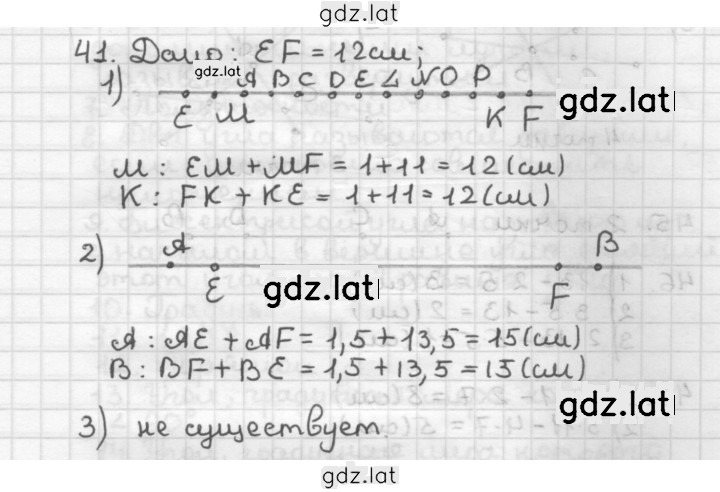 gdz.lat
41. Дано: EF = 12 см;
gdz.lat
1) A B C D E Z N O P
E M K F
gdz.lat
M: EM + MF = 1 + 11 = 12 (см)
K: FK + KE = 1 + 11 = 12 (см)
2) A B
E F
gdz.lat
A: AE + AF = 1,5 + 13,5 = 15 (см)
B: BF + BE = 1,5 + 13,5 = 15 (см)
gdz.lat
3) не существует.
gdz.lat